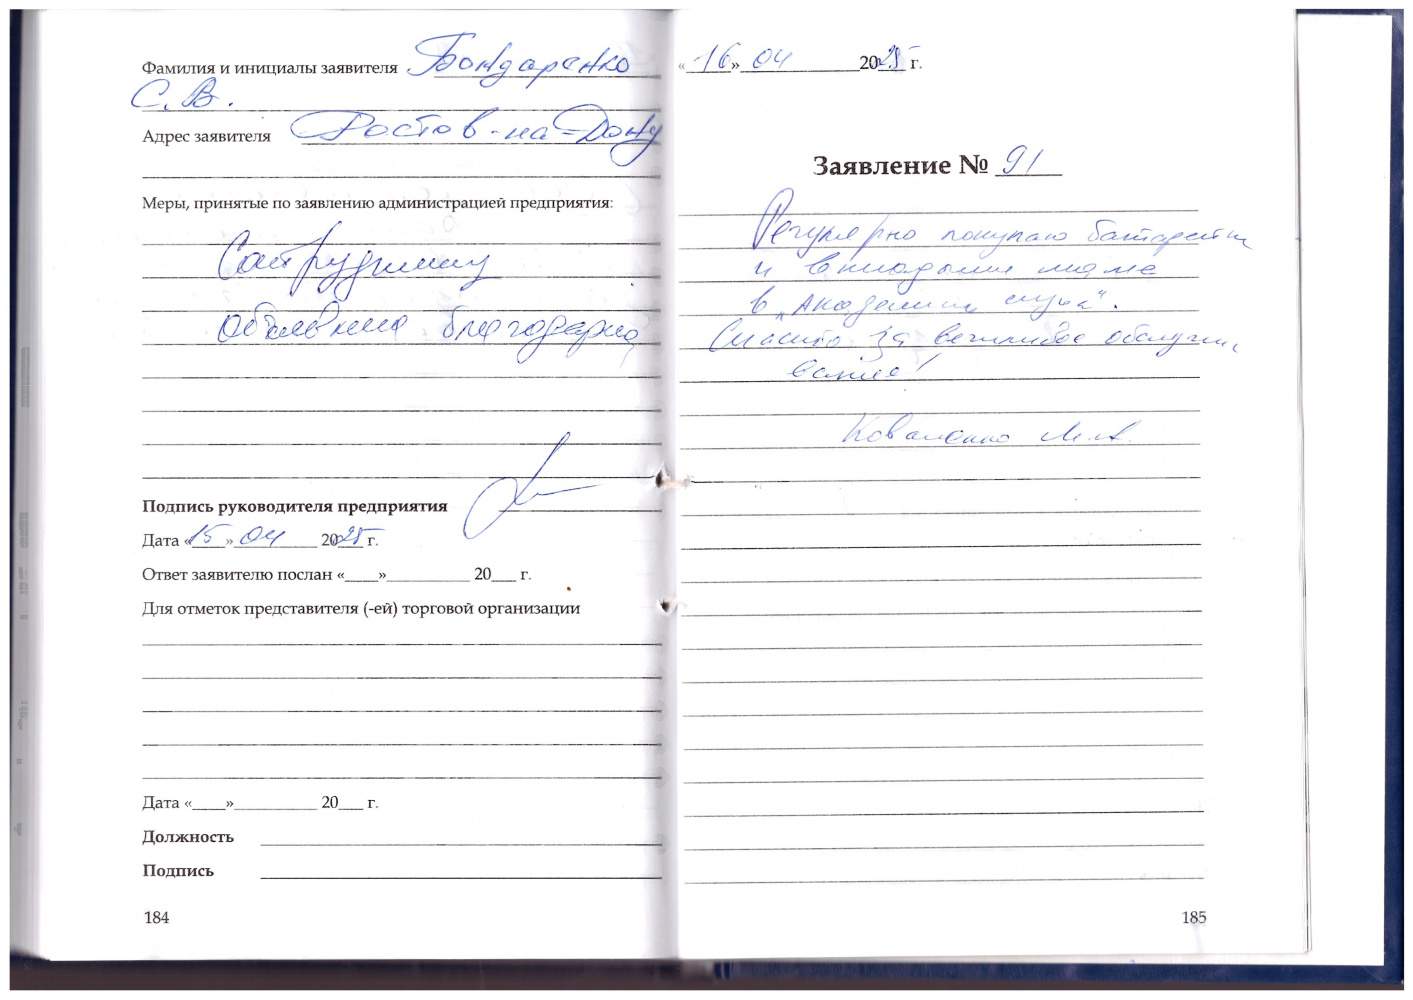 Фамилия и инициалы заявителя Бондаренко
С. В.
Адрес заявителя Ростов-на-Дону
Меры, принятые по заявлению администрацией предприятия:
Сотруднику
объявлена благодарно
Подпись руководителя предприятия
Дата «15» 04 2025 г.
Ответ заявителю послан «____»__________ 20___ г.
Для отметок представителя (-ей) торговой организации
Дата «____»__________ 20___ г.
Должность
Подпись
184
«16» 04 2025 г.
Заявление № 91
Регулярно покупаю батарейки
и вкладыши маме
в „Академии слуха".
Спасибо за вежливое обслужи
вание!
Коваленко М.А.
185